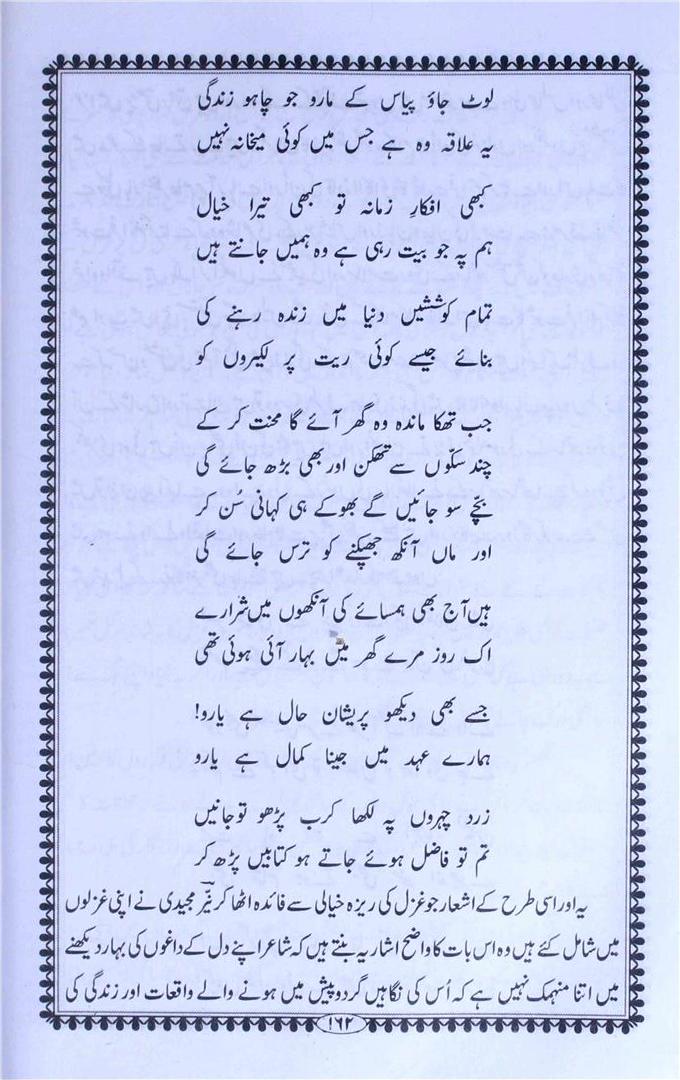 لوٹ جاؤ پیاس کے مارو جو چاہو زندگی
یہ علاقہ وہ ہے جس میں کوئی میخانہ نہیں
کبھی افکارِ زمانہ تو کبھی تیرا خیال
ہم پہ جو بیت رہی ہے وہ ہمیں جانتے ہیں
تمام کوششیں دنیا میں زندہ رہنے کی
بنائے جیسے کوئی ریت پر لکیروں کو
جب تھکا ماندہ وہ گھر آئے گا محنت کر کے
چند سکّوں سے تھکن اور بھی بڑھ جائے گی
بچے سو جائیں گے بھوکے ہی کہانی سُن کر
اور ماں آنکھ جھپکنے کو ترس جائے گی
ہیں آج بھی ہمسائے کی آنکھوں میں شرارے
اک روز مرے گھر میں بہار آئی ہوئی تھی
جسے بھی دیکھو پریشان حال ہے یارو!
ہمارے عہد میں جینا کمال ہے یارو
زرد چہروں پہ لکھا کرب پڑھو تو جانیں
تم تو فاضل ہوئے جاتے ہو کتابیں پڑھ کر
یہ اور اسی طرح کے اشعار جو غزل کی ریزہ خیالی سے فائدہ اٹھا کر نیّر مجیدی نے اپنی غزلوں
میں شامل کئے ہیں وہ اس بات کا واضح اشاریہ بنتے ہیں کہ شاعر اپنے دل کے داغوں کی بہار دیکھنے
میں اتنا منہمک نہیں ہے کہ اُس کی نگاہیں گردوپیش میں ہونے والے واقعات اور زندگی کی
۱۶۲